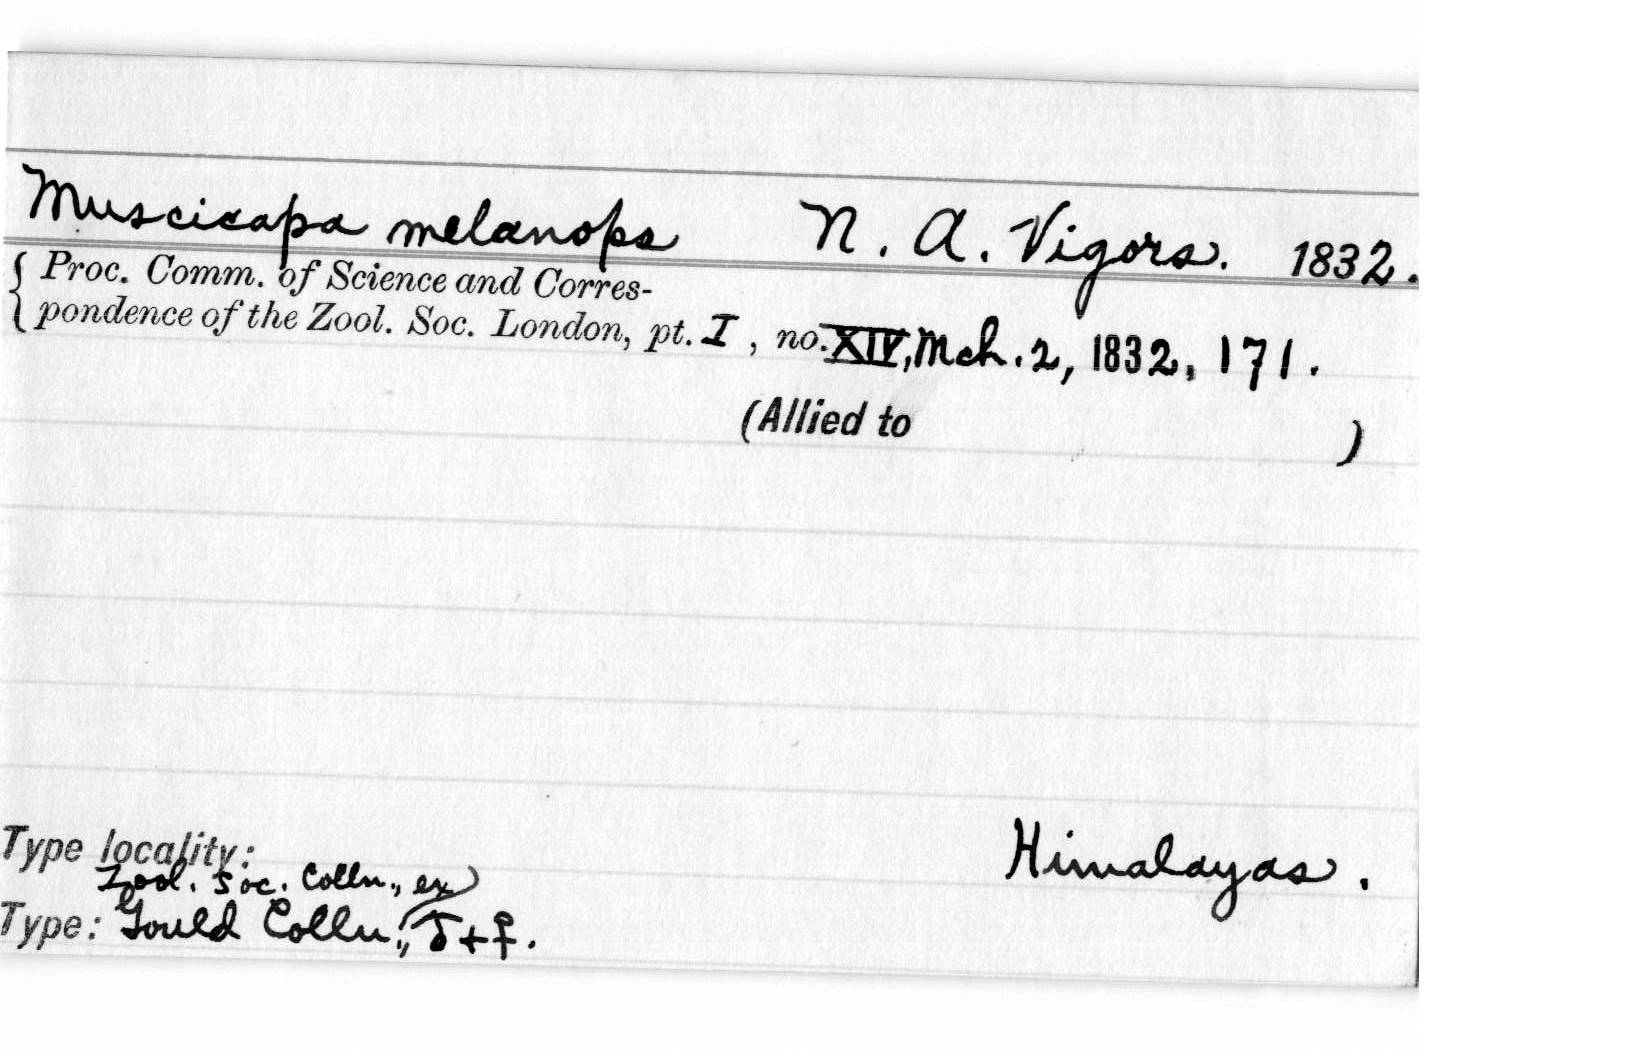 Muscicapa melanops N. A. Vigors. 1832.
{ Proc. Comm. of Science and Corres-
pondence of the Zool. Soc. London, pt. I, no. XIV, Mch. 2, 1832, 171.
(Allied to )
Type locality: Himalayas.
Zool. Soc. Colln., ex
Type: Gould Colln., ♂ + ♀.